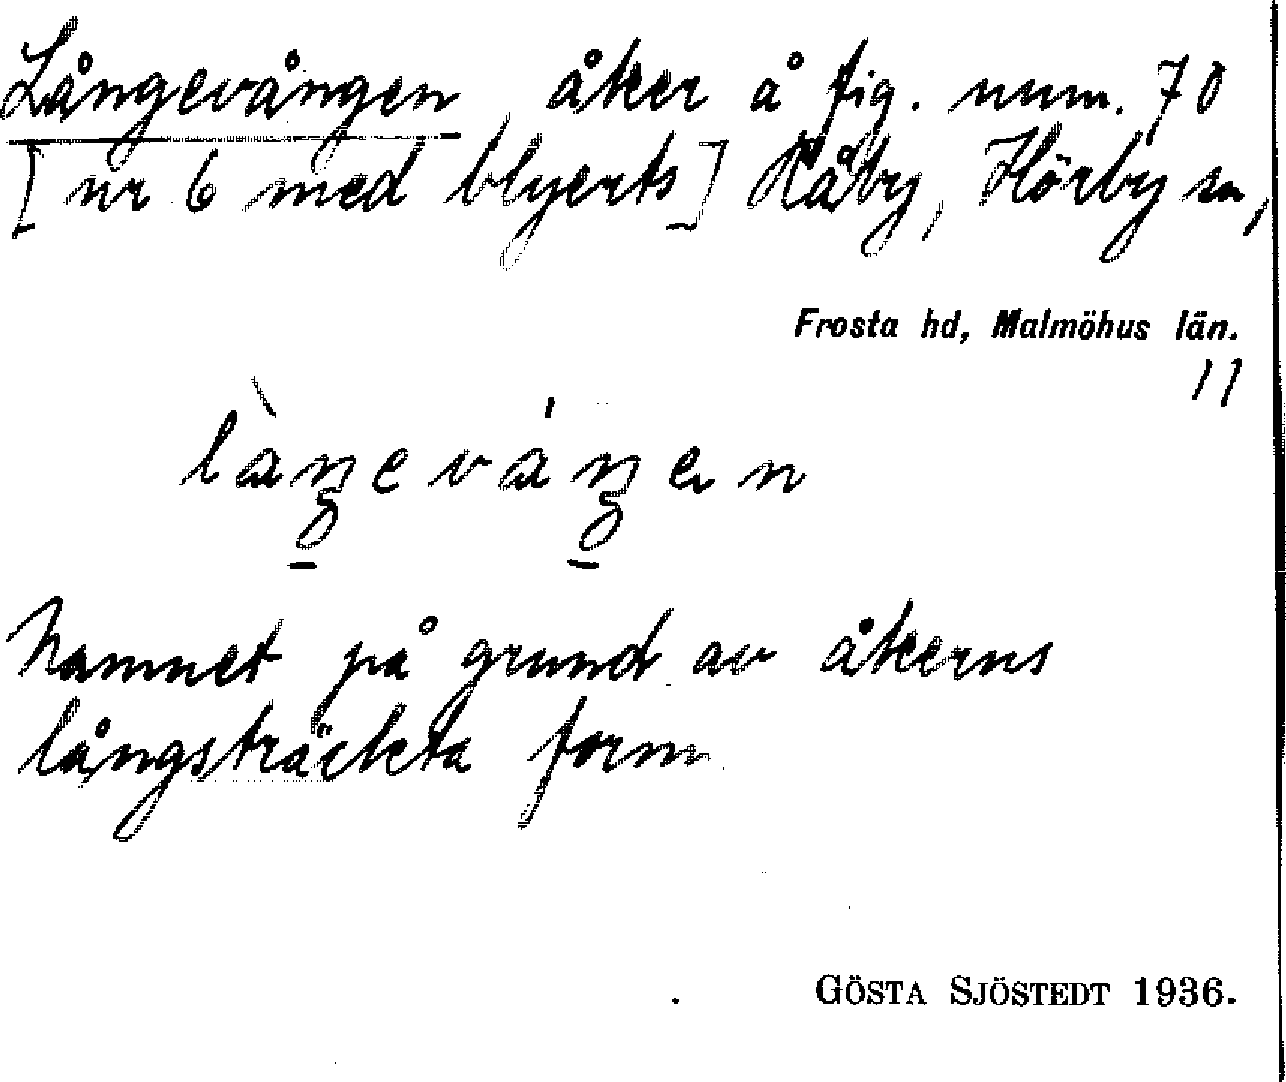 Långevången åker å fig. num. 70
[nr 6 med blyerts] Håby, Hörby sn,
Frosta hd, Malmöhus län.
11
làŋeváŋen
Namnet på grund av åkerns
långsträckta form
GÖSTA SJÖSTEDT 1936.